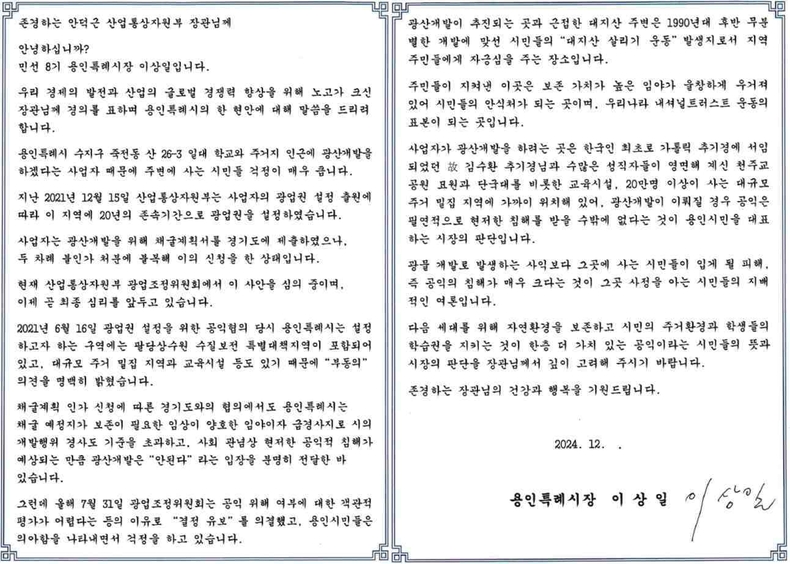 존경하는 안덕근 산업통상자원부 장관님께
안녕하십니까?
민선 8기 용인특례시장 이상일입니다.
우리 경제의 발전과 산업의 글로벌 경쟁력 향상을 위해 노고가 크신
장관님께 경의를 표하며 용인특례시의 한 현안에 대해 말씀을 드리려
합니다.
용인특례시 수지구 죽전동 산 26-3 일대 학교와 주거지 인근에 광산개발을
하겠다는 사업자 때문에 주변에 사는 시민들 걱정이 매우 큽니다.
지난 2021년 12월 15일 산업통상자원부는 사업자의 광업권 설정 출원에
따라 이 지역에 20년의 존속기간으로 광업권을 설정하였습니다.
사업자는 광산개발을 위해 채굴계획서를 경기도에 제출하였으나,
두 차례 불인가 처분에 불복해 이의 신청을 한 상태입니다.
현재 산업통상자원부 광업조정위원회에서 이 사안을 심의 중이며,
이제 곧 최종 심리를 앞두고 있습니다.
2021년 6월 16일 광업권 설정을 위한 공익협의 당시 용인특례시는 설정
하고자 하는 구역에는 팔당상수원 수질보전 특별대책지역이 포함되어
있고, 대규모 주거 밀집 지역과 교육시설 등도 있기 때문에 "부동의"
의견을 명백히 밝혔습니다.
채굴계획 인가 신청에 따른 경기도와의 협의에서도 용인특례시는
채굴 예정지가 보존이 필요한 임상이 양호한 임야이자 급경사지로 시의
개발행위 경사도 기준을 초과하고, 사회 관념상 현저한 공익적 침해가
예상되는 만큼 광산개발은 "안된다" 라는 입장을 분명히 전달한 바
있습니다.
그런데 올해 7월 31일 광업조정위원회는 공익 위해 여부에 대한 객관적
평가가 어렵다는 등의 이유로 "결정 유보" 를 의결했고, 용인시민들은
의아함을 나타내면서 걱정을 하고 있습니다.
광산개발이 추진되는 곳과 근접한 대지산 주변은 1990년대 후반 무분
별한 개발에 맞선 시민들의 "대지산 살리기 운동" 발생지로서 지역
주민들에게 자긍심을 주는 장소입니다.
주민들이 지켜낸 이곳은 보존 가치가 높은 임야가 울창하게 우거져
있어 시민들의 안식처가 되는 곳이며, 우리나라 내셔널트러스트 운동의
표본이 되는 곳입니다.
사업자가 광산개발을 하려는 곳은 한국인 최초로 가톨릭 추기경에 서임
되었던 故 김수환 추기경님과 수많은 성직자들이 영면해 계신 천주교
공원 묘원과 단국대를 비롯한 교육시설, 20만명 이상이 사는 대규모
주거 밀집 지역에 가까이 위치해 있어, 광산개발이 이뤄질 경우 공익은
필연적으로 현저한 침해를 받을 수밖에 없다는 것이 용인시민을 대표
하는 시장의 판단입니다.
광물 개발로 발생하는 사익보다 그곳에 사는 시민들이 입게 될 피해,
즉 공익의 침해가 매우 크다는 것이 그곳 사정을 아는 시민들의 지배
적인 여론입니다.
다음 세대를 위해 자연환경을 보존하고 시민의 주거환경과 학생들의
학습권을 지키는 것이 한층 더 가치 있는 공익이라는 시민들의 뜻과
시장의 판단을 장관님께서 깊이 고려해 주시기 바랍니다.
존경하는 장관님의 건강과 행복을 기원드립니다.
2024. 12. .
용인특례시장 이 상 일 이상일